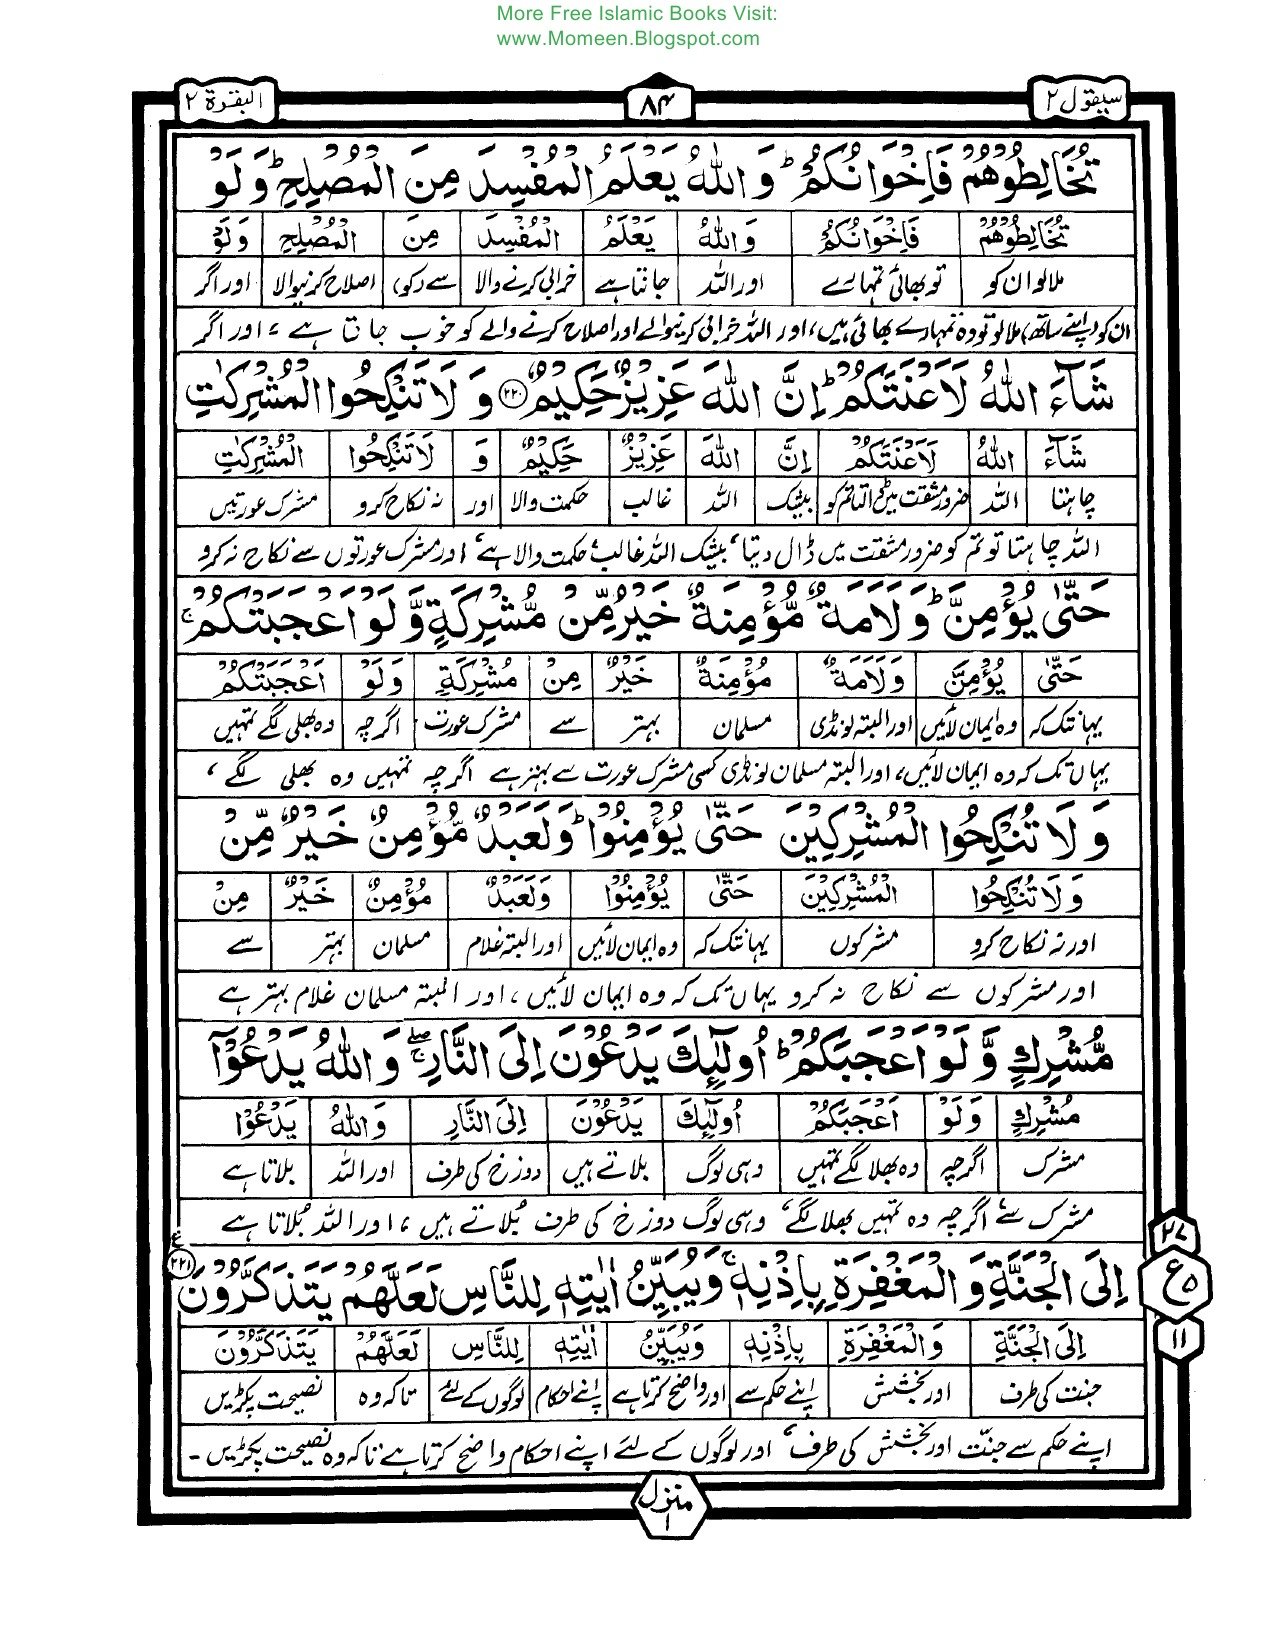 More Free Islamic Books Visit:
www.Momeen.Blogspot.com
سیقول ۲
۸۴
البقرة ۲
تُخَالِطُوْهُمْ فَاِخْوَانُكُمْ ؕ وَ اللّٰهُ يَعْلَمُ الْمُفْسِدَ مِنَ الْمُصْلِحِ ؕ وَ لَوْ
تُخَالِطُوْهُمْ فَاِخْوَانُكُمْ وَ اللّٰهُ يَعْلَمُ الْمُفْسِدَ مِنَ الْمُصْلِحِ وَ لَوْ
ملالو ان کو تو بھائی تمہارے اور اللہ جانتا ہے خرابی کرنے والا سے (کو) اصلاح کرنیوالا اور اگر
ان کو (اپنے ساتھ) ملالو تو وہ تمہارے بھائی ہیں، اور اللہ خرابی کرنیوالے اور اصلاح کرنے والے کو خوب جانتا ہے، اور اگر
شَآءَ اللّٰهُ لَاَعْنَتَكُمْ ؕ اِنَّ اللّٰهَ عَزِيْزٌ حَكِيْمٌ ۲۲۰ وَ لَا تَنْكِحُوا الْمُشْرِكٰتِ
شَآءَ اللّٰهُ لَاَعْنَتَكُمْ اِنَّ اللّٰهَ عَزِيْزٌ حَكِيْمٌ وَ لَا تَنْكِحُوا الْمُشْرِكٰتِ
چاہتا اللہ ضرور مشقت میں ڈالتا تم کو بیشک اللہ غالب حکمت والا اور نہ نکاح کرو مشرک عورتیں
اللہ چاہتا تو تم کو ضرور مشقت میں ڈال دیتا، بیشک اللہ غالب، حکمت والا ہے، اور مشرک عورتوں سے نکاح نہ کرو
حَتّٰى يُؤْمِنَّ ؕ وَ لَاَمَةٌ مُّؤْمِنَةٌ خَيْرٌ مِّنْ مُّشْرِكَةٍ وَّ لَوْ اَعْجَبَتْكُمْ ۚ
حَتّٰى يُؤْمِنَّ وَ لَاَمَةٌ مُؤْمِنَةٌ خَيْرٌ مِنْ مُشْرِكَةٍ وَ لَوْ اَعْجَبَتْكُمْ
یہانتک کہ وہ ایمان لائیں اور البتہ لونڈی مسلمان بہتر سے مشرک عورت اگرچہ وہ بھلی لگے تمہیں
یہاں تک کہ وہ ایمان لائیں، اور البتہ مسلمان لونڈی کسی مشرک عورت سے بہتر ہے اگرچہ تمہیں وہ بھلی لگے،
وَ لَا تُنْكِحُوا الْمُشْرِكِيْنَ حَتّٰى يُؤْمِنُوْا ؕ وَ لَعَبْدٌ مُّؤْمِنٌ خَيْرٌ مِّنْ
وَ لَا تُنْكِحُوا الْمُشْرِكِيْنَ حَتّٰى يُؤْمِنُوْا وَ لَعَبْدٌ مُؤْمِنٌ خَيْرٌ مِنْ
اور نہ نکاح کرو مشرکوں یہانتک کہ وہ ایمان لائیں اور البتہ غلام مسلمان بہتر سے
اور مشرکوں سے نکاح نہ کرو یہاں تک کہ وہ ایمان لائیں، اور البتہ مسلمان غلام بہتر ہے
مُّشْرِكٍ وَّ لَوْ اَعْجَبَكُمْ ؕ اُولٰٓئِكَ يَدْعُوْنَ اِلَى النَّارِ ۖۚ وَ اللّٰهُ يَدْعُوْٓا
مُشْرِكٍ وَ لَوْ اَعْجَبَكُمْ اُولٰٓئِكَ يَدْعُوْنَ اِلَى النَّارِ وَ اللّٰهُ يَدْعُوْٓا
مشرک اگرچہ وہ بھلا لگے تمہیں وہی لوگ بلاتے ہیں دوزخ کی طرف اور اللہ بلاتا ہے
مشرک سے، اگرچہ وہ تمہیں بھلا لگے، وہی لوگ دوزخ کی طرف بُلاتے ہیں، اور اللہ بُلاتا ہے
اِلَى الْجَنَّةِ وَ الْمَغْفِرَةِ بِاِذْنِهٖ ۚ وَ يُبَيِّنُ اٰيٰتِهٖ لِلنَّاسِ لَعَلَّهُمْ يَتَذَكَّرُوْنَ ۲۲۱ ع
اِلَى الْجَنَّةِ وَ الْمَغْفِرَةِ بِاِذْنِهٖ وَ يُبَيِّنُ اٰيٰتِهٖ لِلنَّاسِ لَعَلَّهُمْ يَتَذَكَّرُوْنَ
جنت کی طرف اور بخشش اپنے حکم سے اور واضح کرتا ہے اپنے احکام لوگوں کے لئے تاکہ وہ نصیحت پکڑیں
اپنے حکم سے جنّت اور بخشش کی طرف، اور لوگوں کے لئے اپنے احکام واضح کرتا ہے تاکہ وہ نصیحت پکڑیں -
۲۷
ع۵
۱۱
منزل
۱